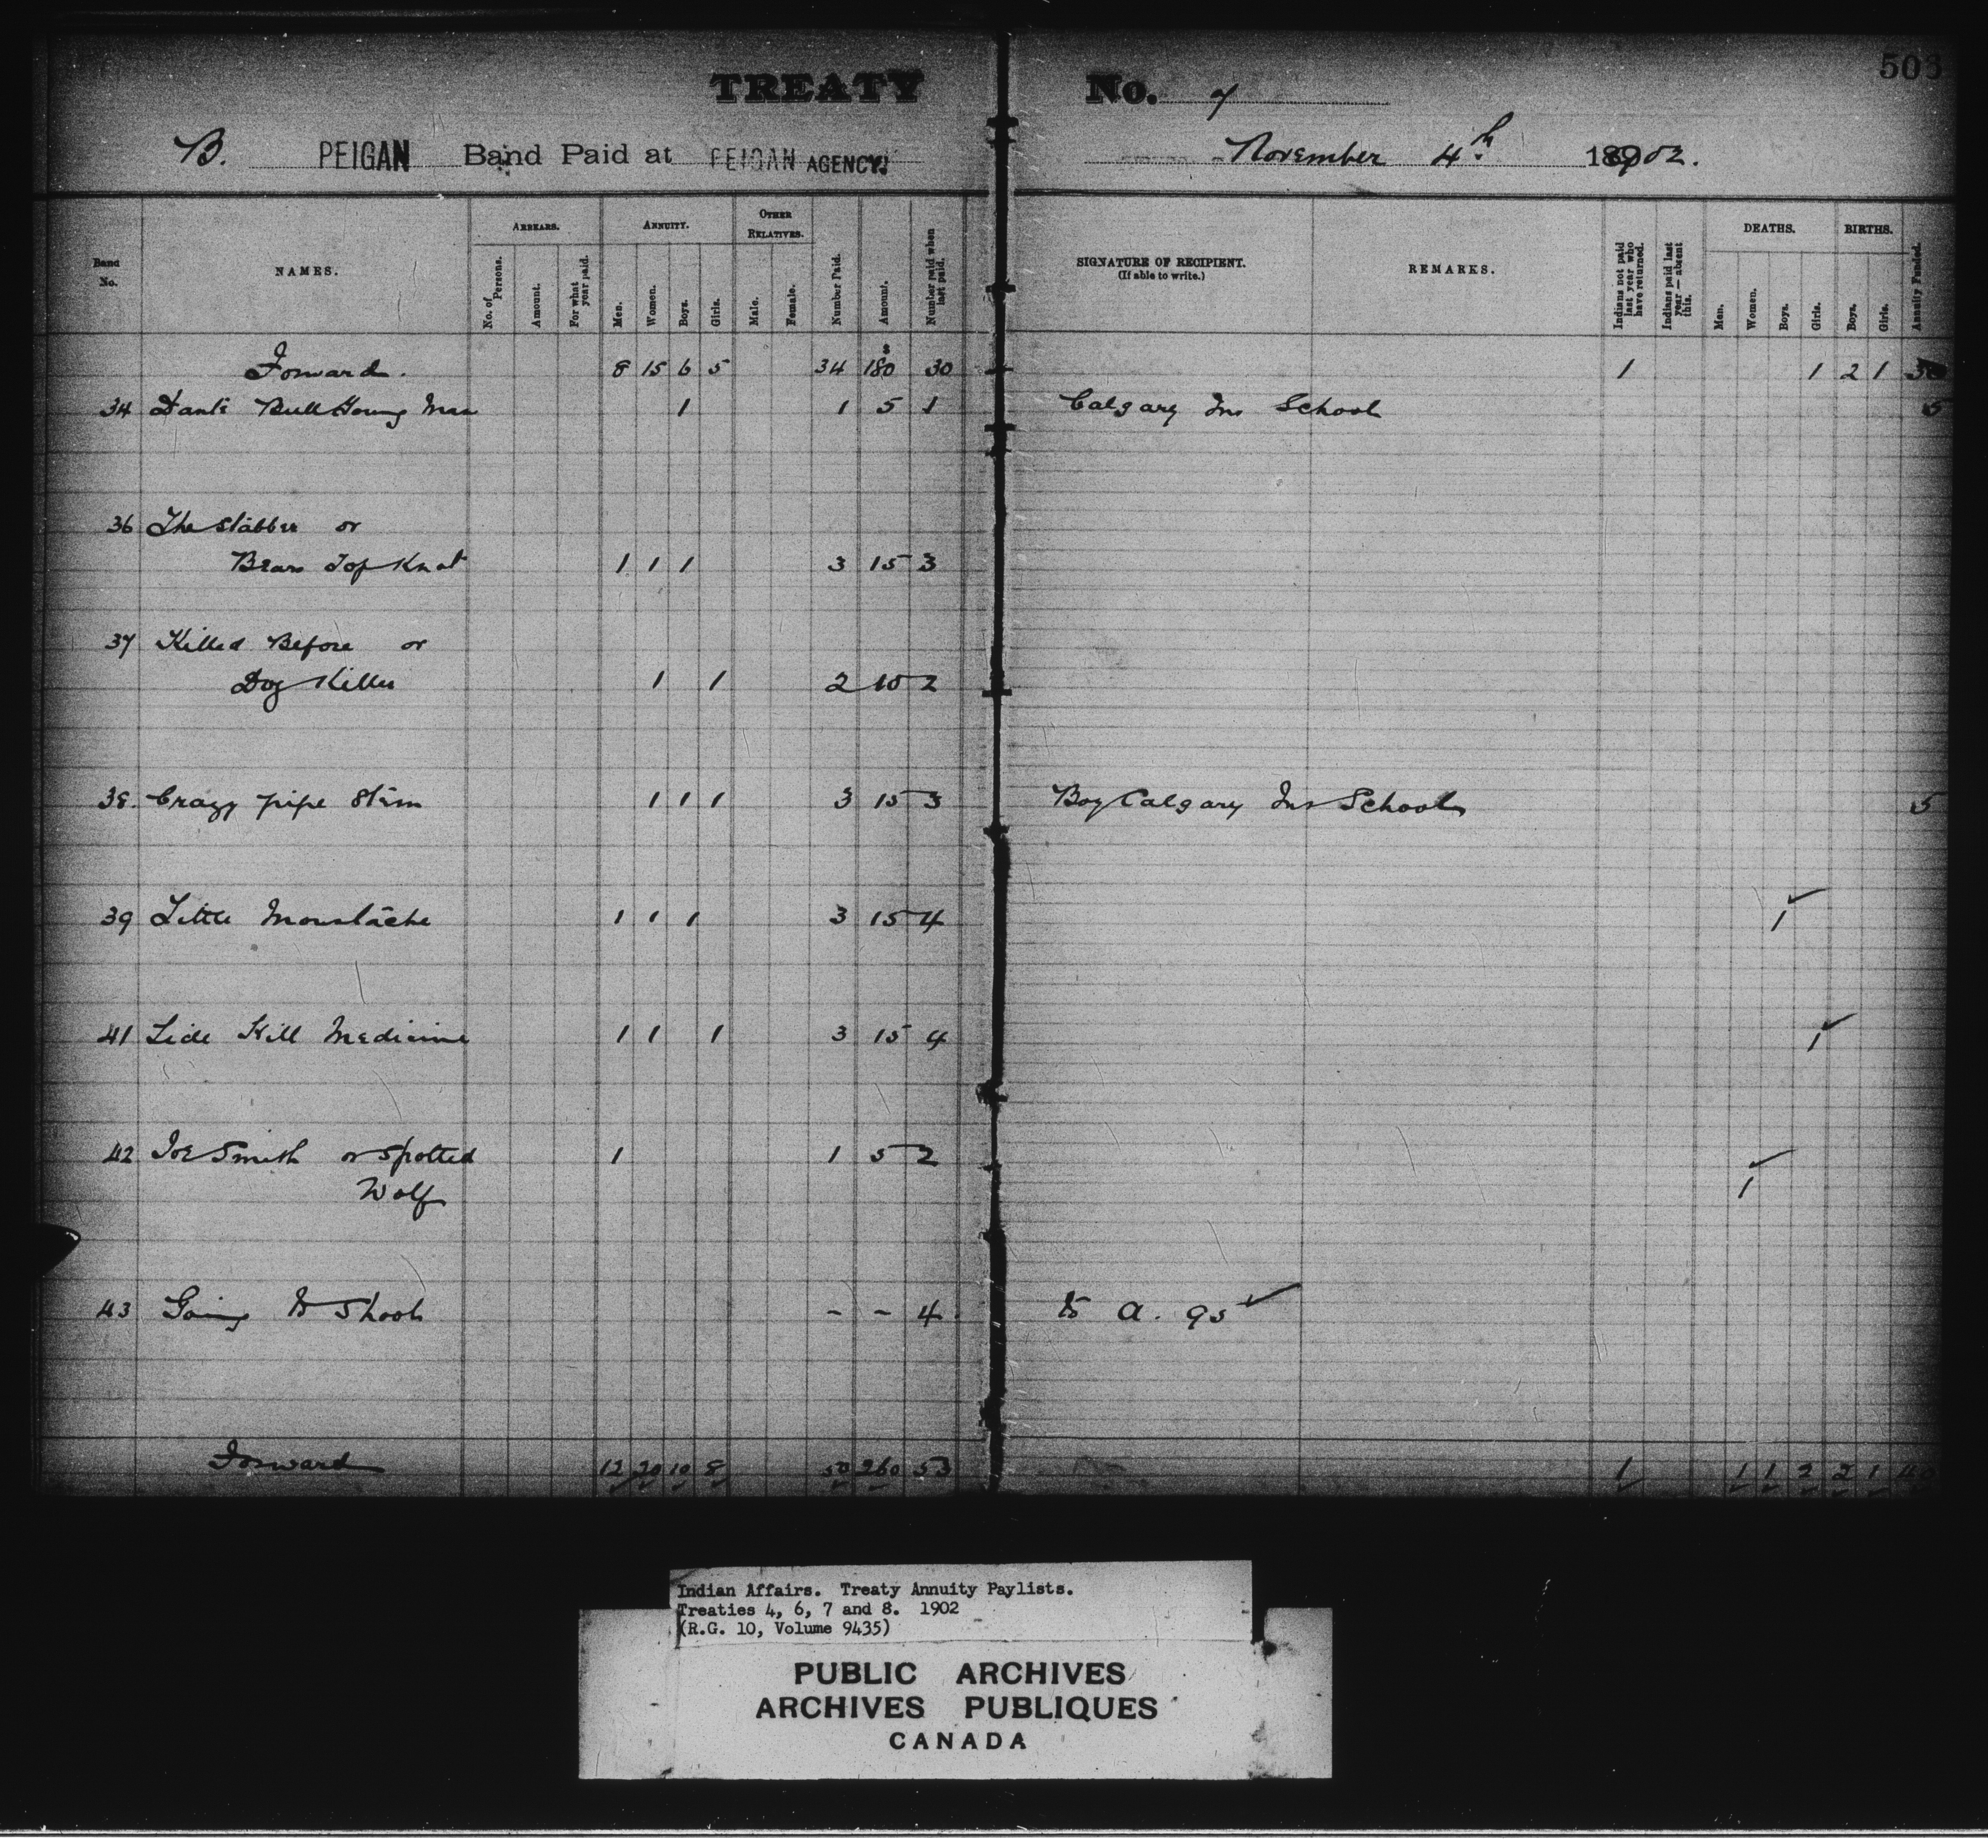 503
TREATY No. 7
B. PEIGAN Band Paid at PEIGAN AGENCY November 4th 1902.
Band No. NAMES. ARREARS. No. of Persons. Amount. For what year paid. ANNUITY. Men. Women. Boys. Girls. OTHER RELATIVES. Male. Female. Number Paid. Amount. Number paid when last paid. SIGNATURE OF RECIPIENT. (If able to write.) REMARKS. Indians not paid last year who have returned. Indians paid last year — absent this. DEATHS. Men. Women. Boys. Girls. BIRTHS. Boys. Girls. Annuity Funded.
Forward. 8 15 6 5 34 $180 30 1 1 2 1
34 Bull Young Man 1 1 5 1 Calgary Ins School 5
36 The Stabber or
Bears Top Knot 1 1 1 3 15 3
37 Killed Before or
Dog Killer 1 1 2 10 2
38. Crazy pipe Stem 1 1 1 3 15 3 Boy Calgary Ins School 5
39 Little Moustache 1 1 1 3 15 4 1
41 Side Kill Medicine 1 1 1 3 15 4 1
42 Joe Smith or Spotted 1 1 5 2 1
Wolf
43 Going to Shoot - - 4. to a. 95
Forward 12 20 10 8 50 260 53 1 1 1 2 2 1 40
Indian Affairs. Treaty Annuity Paylists.
Treaties 4, 6, 7 and 8. 1902
(R.G. 10, Volume 9435)
PUBLIC ARCHIVES
ARCHIVES PUBLIQUES
CANADA